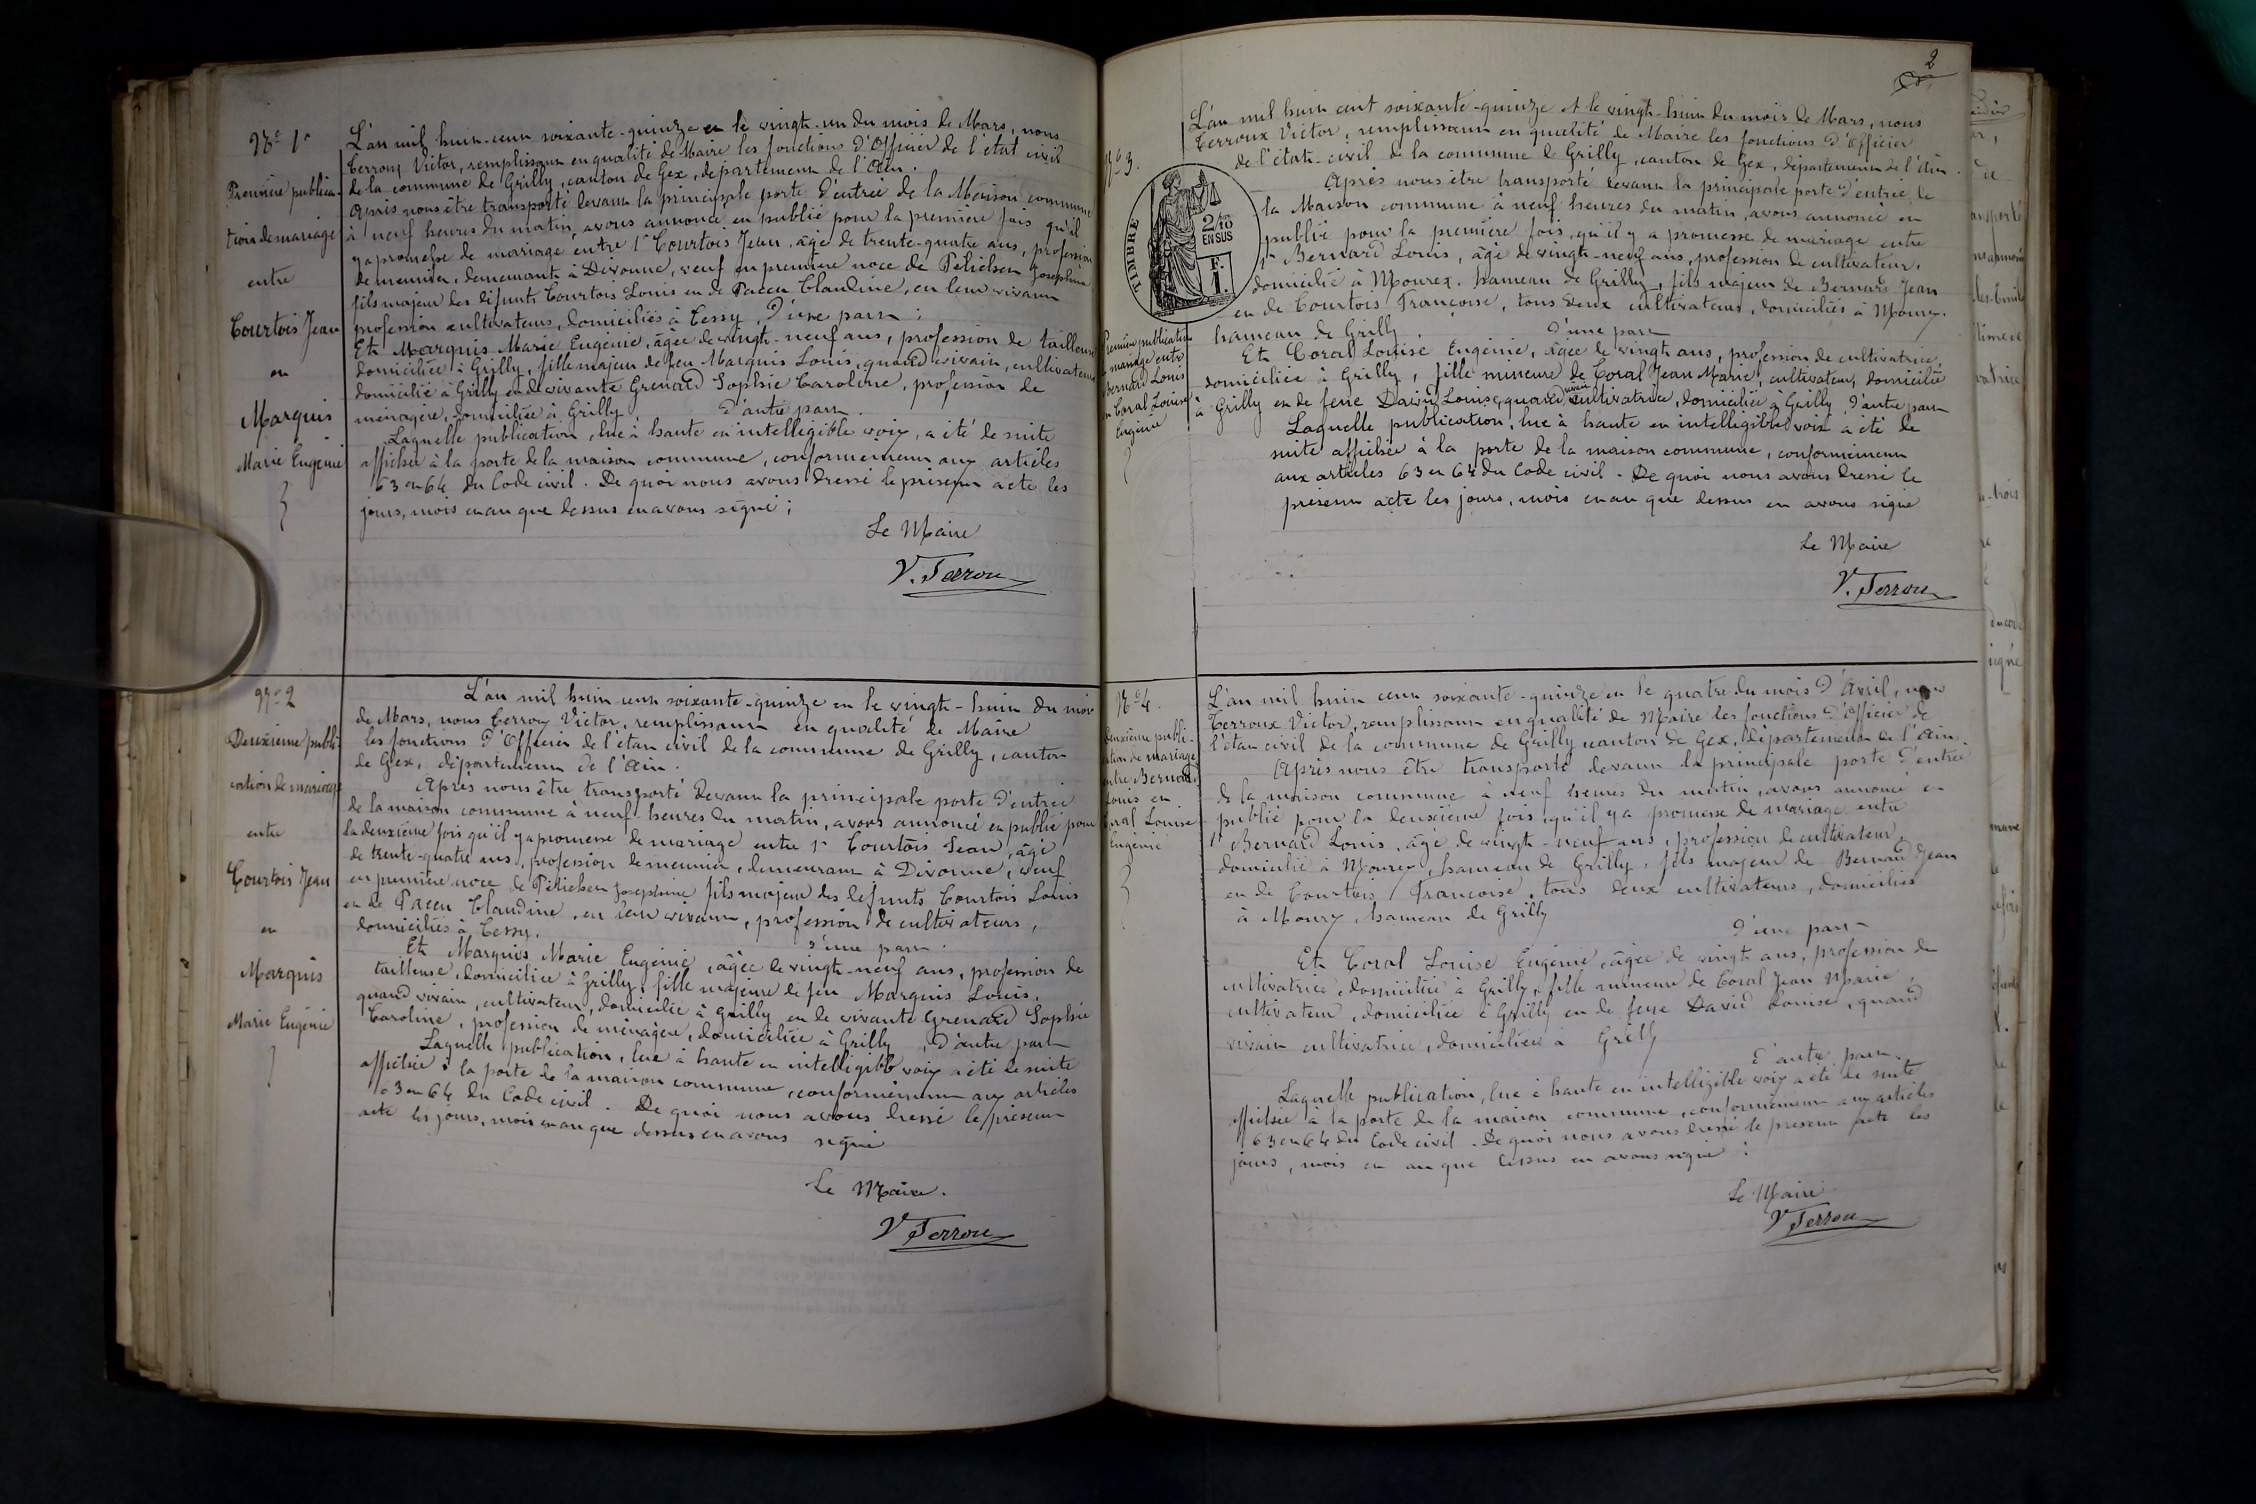 No 1er
Première publica-
tion de mariage
entre
Courtois Jean
et
Marquis
Marie Eugénie
L'an mil huit-cent soixante-quinze et le vingt-un du mois de Mars, nous
Terroux Victor, remplissant en qualité de Maire les fonctions d'Officier de l'état civil
de la commune de Grilly, canton de Gex, département de l'Ain.
Après nous être transporté devant la principale porte d'entrée de la Maison commune
à neuf heures du matin, avons annoncé et publié pour la première fois qu'il
y a promesse de mariage entre 1er Courtois Jean, âgé de trente-quatre ans, profession
de meunier, demeurant à Divonne, veuf en première noce de Joséphine
fils majeur des défunts Courtois Louis et de Claudine, en leur vivant
profession cultivateurs, domiciliés à Cessy, d'une part;
Et Marquis Marie Eugénie, âgée de vingt-neuf ans, profession de tailleuse
domiciliée à Grilly, fille majeur de feu Marquis Louis, quand vivait, cultivateur
domicilié à Grilly et de vivante Grenard Sophie Caroline, profession de
ménagère, domiciliée à Grilly d'autre part.
Laquelle publication, lue à haute et intelligible voix, a été de suite
affichée à la porte de la maison commune, conformément aux articles
63 et 64 du Code civil. De quoi nous avons dressé le présent acte les
jours, mois et an que dessus et avons signé;
Le Maire
V. Terroux
No 2
Deuxième publi-
cation de mariage
entre
Courtois Jean
et
Marquis
Marie Eugénie
L'an mil huit cent soixante-quinze et le vingt-huit du mois
de Mars, nous Terroux Victor, remplissant en qualité de Maire
les fonctions d'Officier de l'état civil de la commune de Grilly, canton
de Gex, département de l'Ain.
Après nous être transporté devant la principale porte d'entrée
de la maison commune à neuf heures du matin, avons annoncé et publié pour
la deuxième fois qu'il y a promesse de mariage entre 1er Courtois Jean, âgé
de trente-quatre ans, profession de meunier, demeurant à Divonne, veuf
en première noce de Joséphine fils majeur des défunts Courtois Louis
et de Claudine, en leur vivant, profession de cultivateurs,
domiciliés à Cessy. d'une part.
Et Marquis Marie Eugénie, âgée de vingt-neuf ans, profession de
tailleuse, domiciliée à Grilly, fille majeure de feu Marquis Louis,
quand vivait, cultivateur, domicilié à Grilly et de vivante Grenard Sophie
Caroline, profession de ménagère, domiciliée à Grilly, d'autre part
Laquelle publication, lue à haute et intelligible voix a été de suite
affichée à la porte de la maison commune, conformément aux articles
63 et 64 du Code civil. De quoi nous avons dressé le présent
acte les jours, mois et an que dessus et avons signé
Le Maire.
V Terroux
2
No 3.
TIMBRE
2/10
EN SUS
1 F.
Première publication
de mariage entre
Bernard Louis
et Coral Louise
Eugénie
L'an mil huit cent soixante-quinze et le vingt-huit du mois de Mars, nous
Terroux Victor, remplissant en qualité de Maire les fonctions d'Officier
de l'état-civil de la commune de Grilly, canton de Gex, département de l'Ain.
Après nous être transporté devant la principale porte d'entrée de
la Maison commune à neuf heures du matin, avons annoncé et
publié pour la première fois, qu'il y a promesse de mariage entre
1er Bernard Louis, âgé de vingt-neuf ans, profession de cultivateur,
domicilié à Mourex, hameau de Grilly, fils majeur de Bernard Jean
et de Courtois Françoise, tous deux cultivateurs, domiciliés à Mourex,
hameau de Grilly. d'une part
Et Coral Louise Eugénie, âgée de vingt ans, profession de cultivatrice,
domiciliée à Grilly, fille mineure de Coral Jean Marie, cultivateur, domicilié
à Grilly et de feue David Louise, quand vivait cultivatrice, domiciliée à Grilly, d'autre part
Laquelle publication, lue à haute et intelligible voix a été de
suite affichée à la porte de la maison commune, conformément
aux articles 63 et 64 du Code civil. De quoi nous avons dressé le
présent acte les jours, mois et an que dessus et avons signé
Le Maire
V. Terroux
No 4.
Deuxième publi-
cation de mariage
entre Bernard
Louis et
Coral Louise
Eugénie
L'an mil huit cent soixante-quinze et le quatre du mois d'Avril, nous
Terroux Victor, remplissant en qualité de Maire les fonctions d'Officier de
l'état civil de la commune de Grilly canton de Gex, département de l'Ain.
Après nous être transporté devant la principale porte d'entrée
de la maison commune à neuf heures du matin, avons annoncé et
publié pour la deuxième fois, qu'il y a promesse de mariage entre
1er Bernard Louis, âgé de vingt-neuf ans, profession de cultivateur,
domicilié à Mourex, hameau de Grilly, fils majeur de Bernard Jean
et de Courtois Françoise, tous deux cultivateurs, domiciliés
à Mourex, hameau de Grilly
d'une part
Et Coral Louise Eugénie, âgée de vingt ans, profession de
cultivatrice, domiciliée à Grilly, fille mineure de Coral Jean Marie,
cultivateur, domiciliée à Grilly et de feue David Louise, quand
vivait cultivatrice, domiciliée à Grilly
d'autre part.
Laquelle publication, lue à haute et intelligible voix a été de suite
affichée à la porte de la maison commune, conformément aux articles
63 et 64 du Code civil. De quoi nous avons dressé le présent acte les
jours, mois et an que dessus et avons signé:
Le Maire
V Terroux